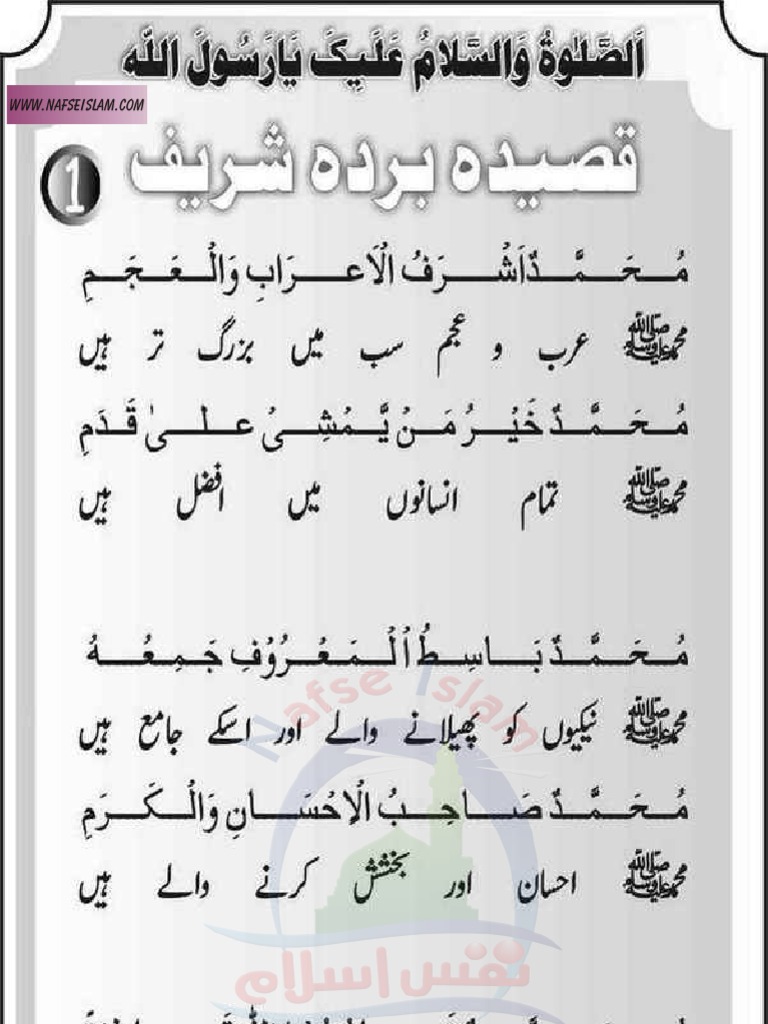 اَلصَّلٰوةُ وَالسَّلَامُ عَلَيْکَ يَارَسُوْلَ اللّٰه
WWW.NAFSEISLAM.COM
قصیدہ بردہ شریف
1
مُحَمَّدٌ اَشْرَفُ الْاَعرَابِ وَالْعَجَمِ
محمدﷺ عرب و عجم سب میں بزرگ تر ہیں
مُحَمَّدٌ خَيْرُ مَنْ يَّمْشِیْ عَلٰی قَدَمِ
محمدﷺ تمام انسانوں میں افضل ہیں
مُحَمَّدٌ بَاسِطُ الْمَعْرُوْفِ جَمِعُهُ
محمدﷺ نیکیوں کو پھیلانے والے اور اسکے جامع ہیں
مُحَمَّدٌ صَاحِبُ الْاِحْسَانِ وَالْکَرَمِ
محمدﷺ احسان اور بخشش کرنے والے ہیں
Nafse Islam
نفس اسلام